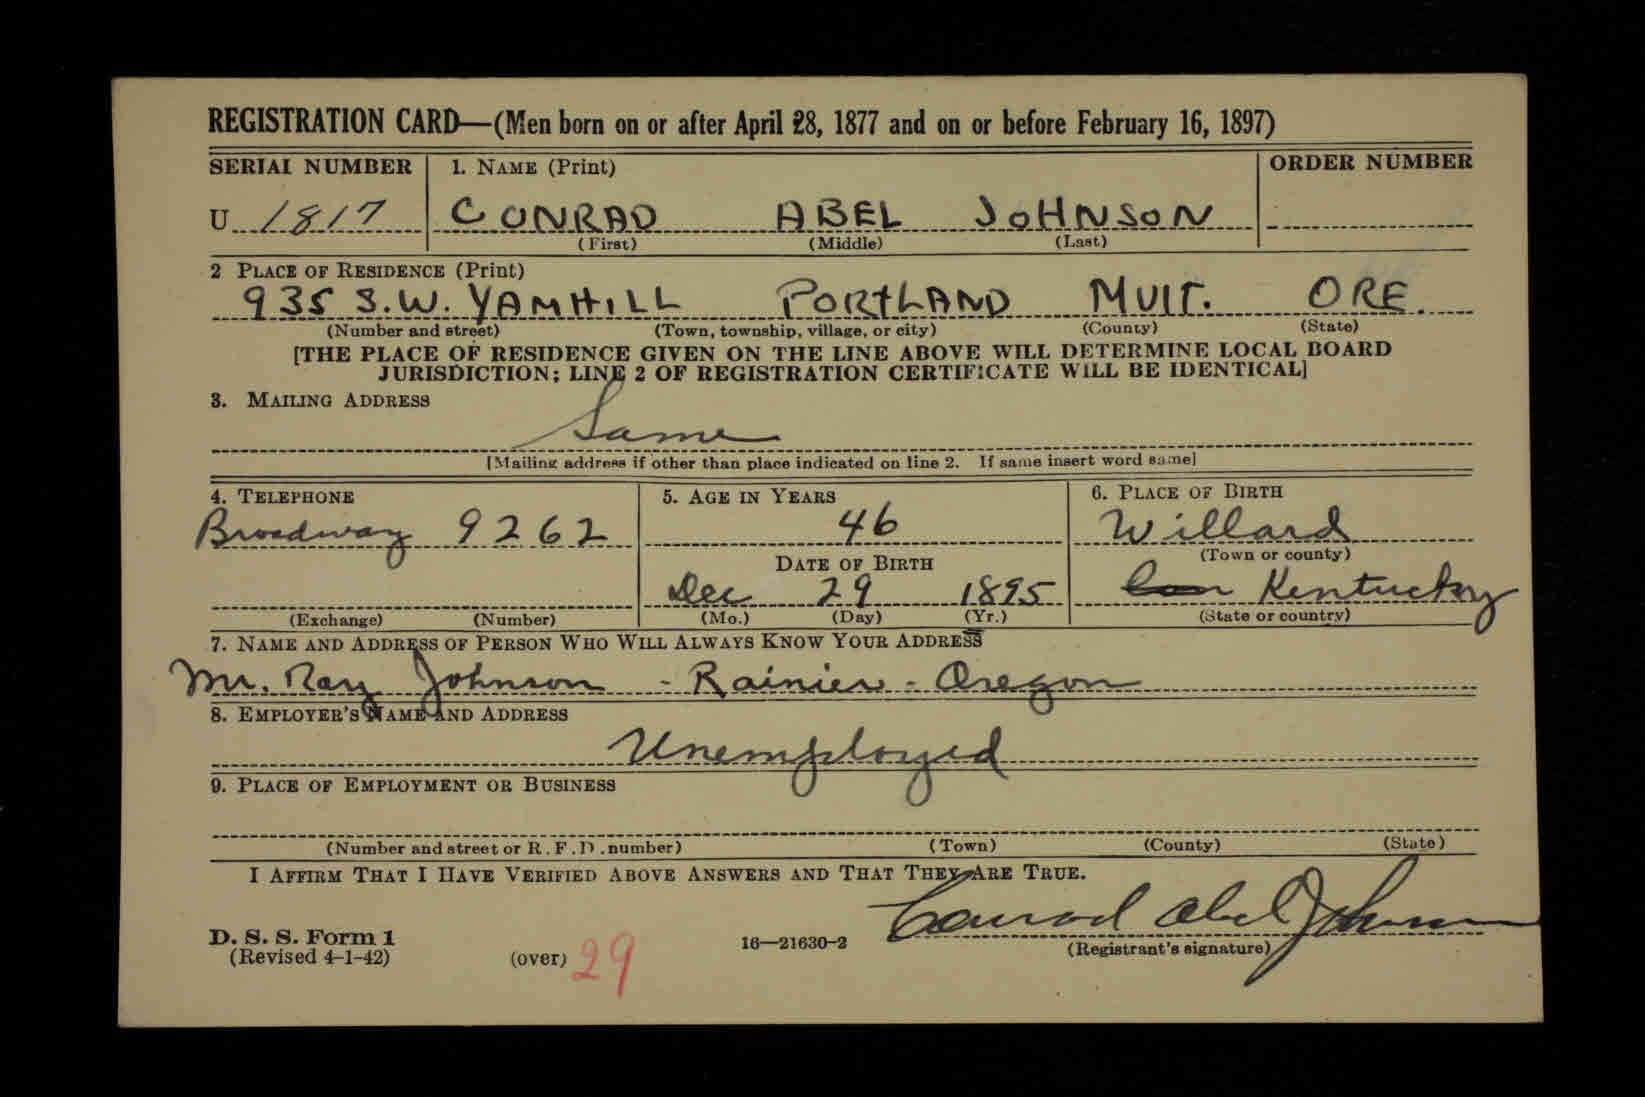 REGISTRATION CARD—(Men born on or after April 28, 1877 and on or before February 16, 1897)
SERIAL NUMBER 1. NAME (Print) ORDER NUMBER
U 1817 CONRAD ABEL JOHNSON
(First) (Middle) (Last)
2 PLACE OF RESIDENCE (Print)
935 S.W. YAMHILL PORTLAND MULT. ORE.
(Number and street) (Town, township, village, or city) (County) (State)
[THE PLACE OF RESIDENCE GIVEN ON THE LINE ABOVE WILL DETERMINE LOCAL BOARD
JURISDICTION; LINE 2 OF REGISTRATION CERTIFICATE WILL BE IDENTICAL]
3. MAILING ADDRESS
Same
[Mailing address if other than place indicated on line 2. If same insert word same]
4. TELEPHONE 5. AGE IN YEARS 6. PLACE OF BIRTH
Broadway 9262 46 Willard
(Town or county)
DATE OF BIRTH
Dec 29 1895 Kentucky
(Exchange) (Number) (Mo.) (Day) (Yr.) (State or country)
7. NAME AND ADDRESS OF PERSON WHO WILL ALWAYS KNOW YOUR ADDRESS
Mr. Ray Johnson - Rainier - Oregon
8. EMPLOYER'S NAME AND ADDRESS
Unemployed
9. PLACE OF EMPLOYMENT OR BUSINESS
(Number and street or R.F.D. number) (Town) (County) (State)
I AFFIRM THAT I HAVE VERIFIED ABOVE ANSWERS AND THAT THEY ARE TRUE.
Conrad Abel Johnson
D. S. S. Form 1 16—21630-2 (Registrant's signature)
(Revised 4-1-42) (over) 29